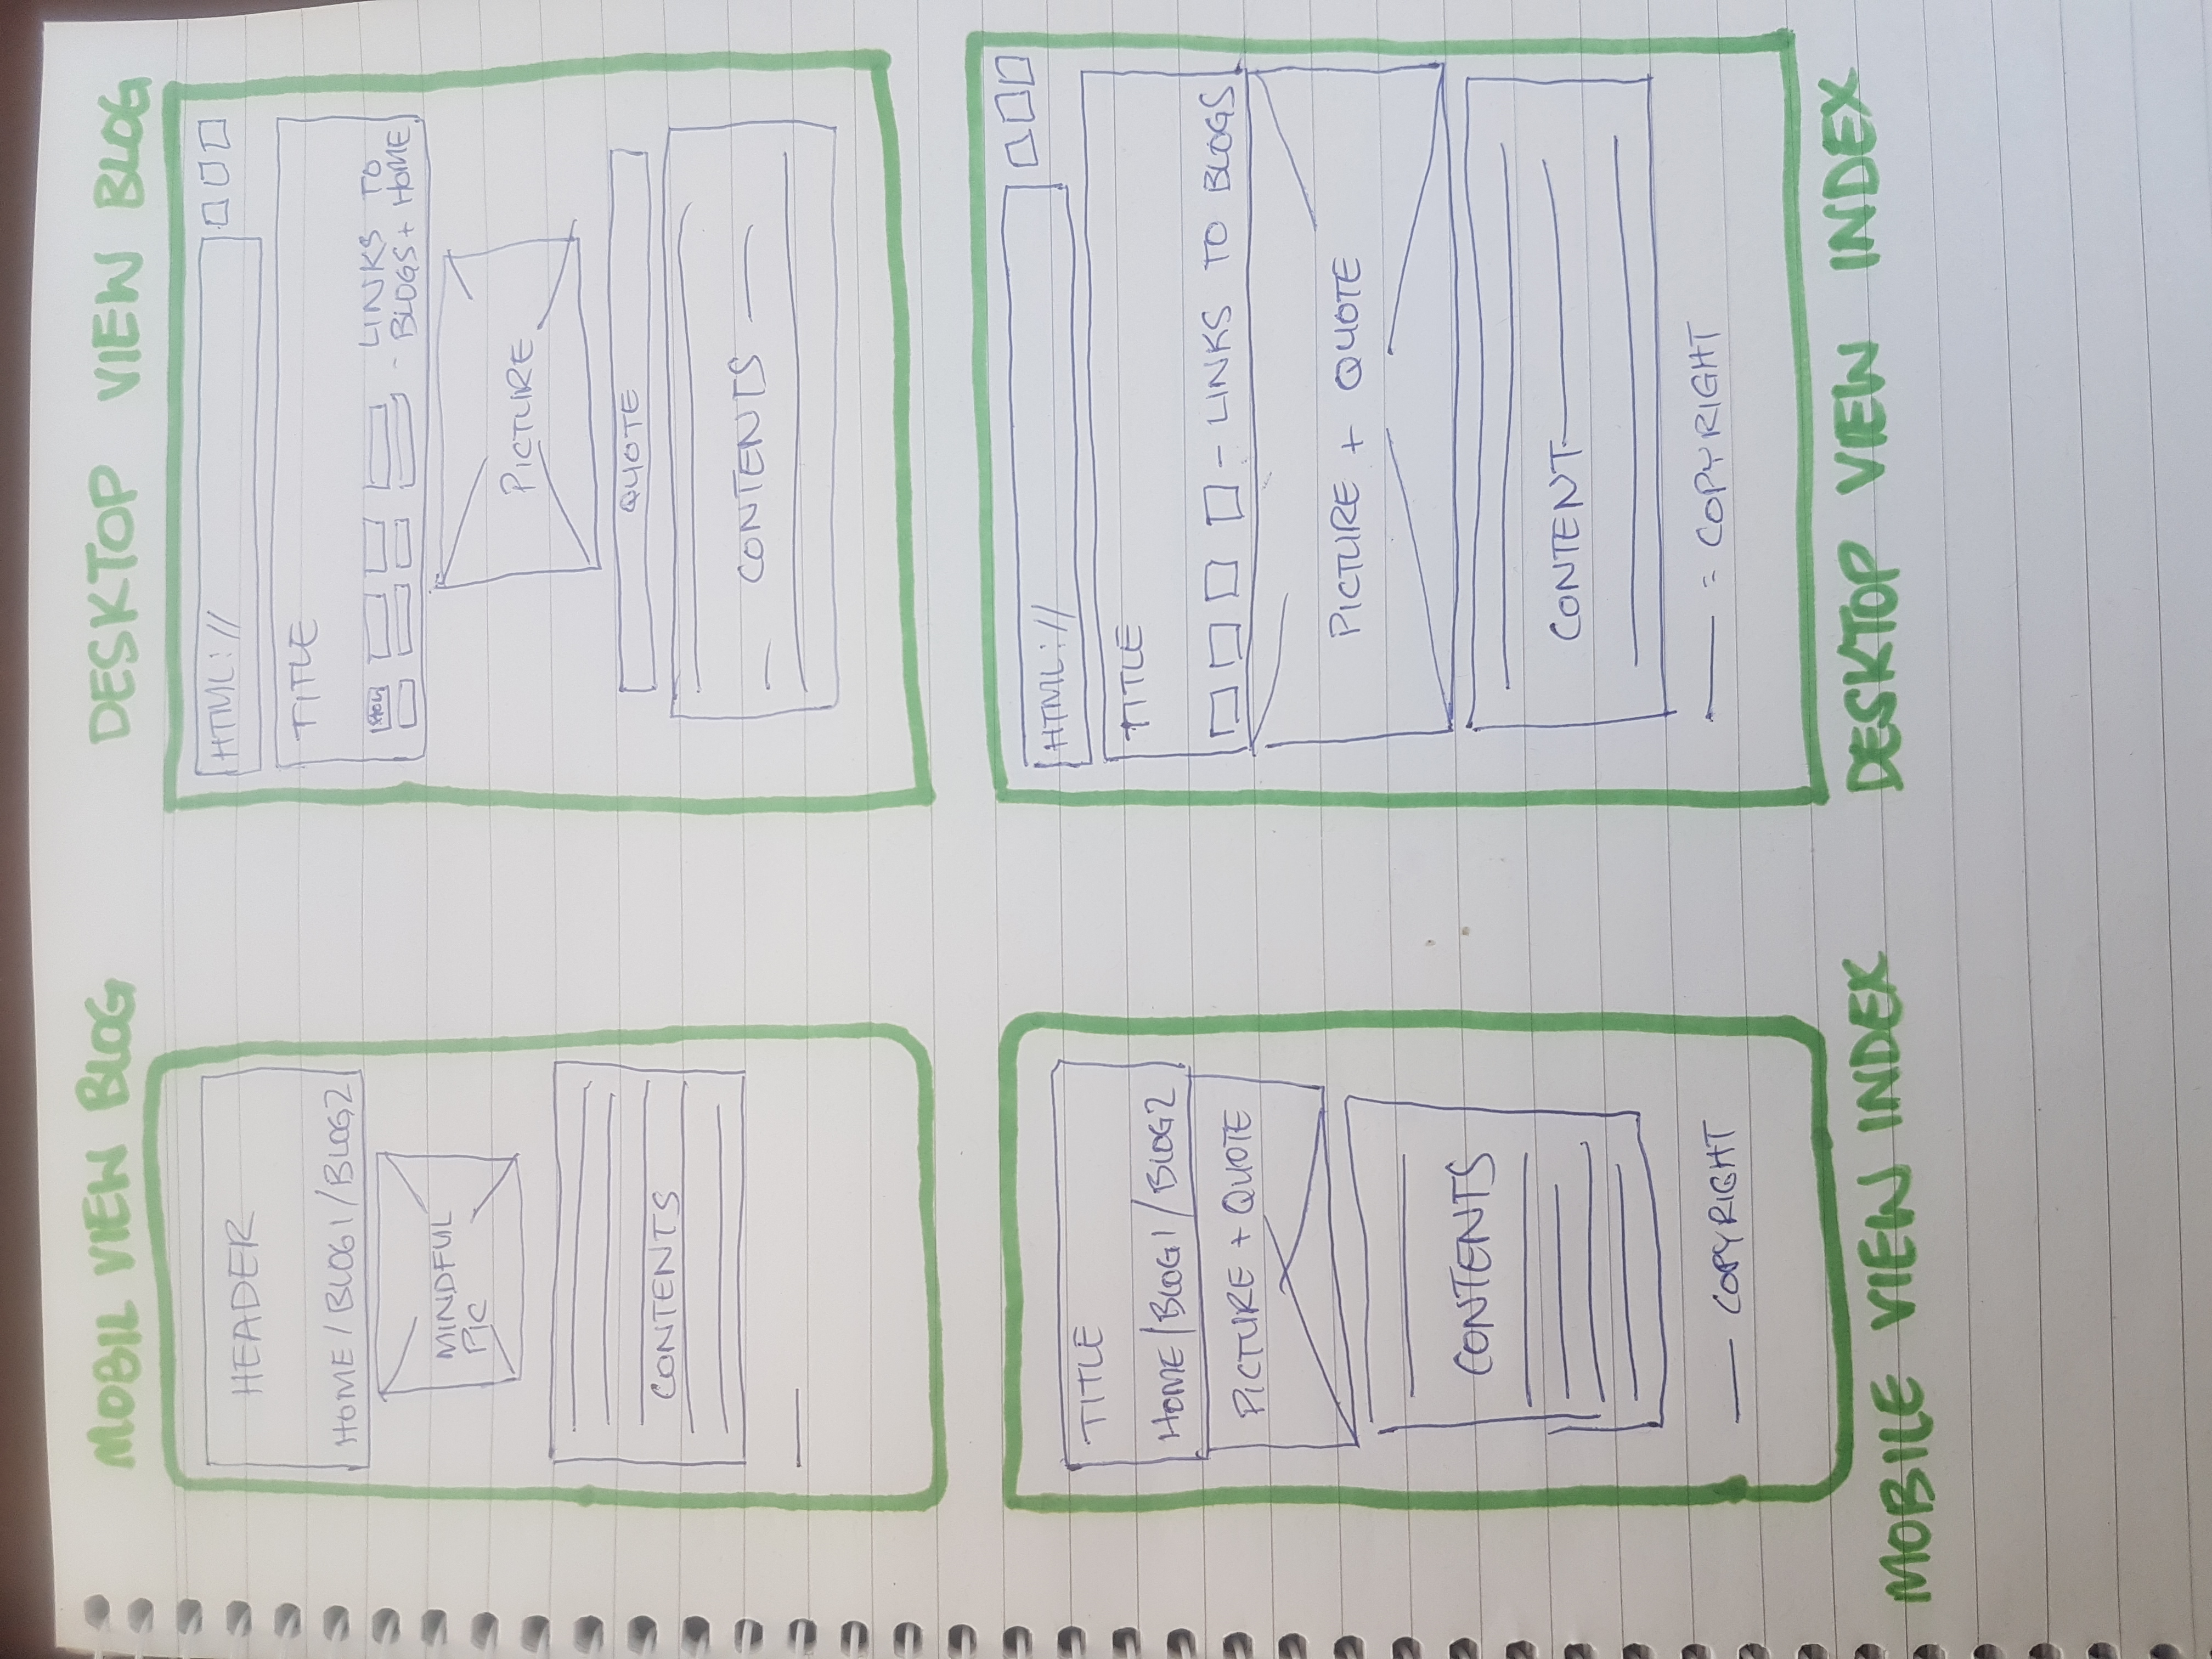 MOBIL VIEW BLOG
HEADER
HOME / BLOG1 / BLOG2
MINDFUL
PIC
CONTENTS
DESKTOP VIEW BLOG
HTML://
TITLE
LINKS TO
- BLOGS + HOME
PICTURE
QUOTE
CONTENTS
TITLE
HOME / BLOG1 / BLOG2
PICTURE + QUOTE
CONTENTS
COPYRIGHT
MOBILE VIEW INDEX
HTML://
TITLE
- LINKS TO BLOGS
PICTURE + QUOTE
CONTENT
= COPYRIGHT
DESKTOP VIEW INDEX